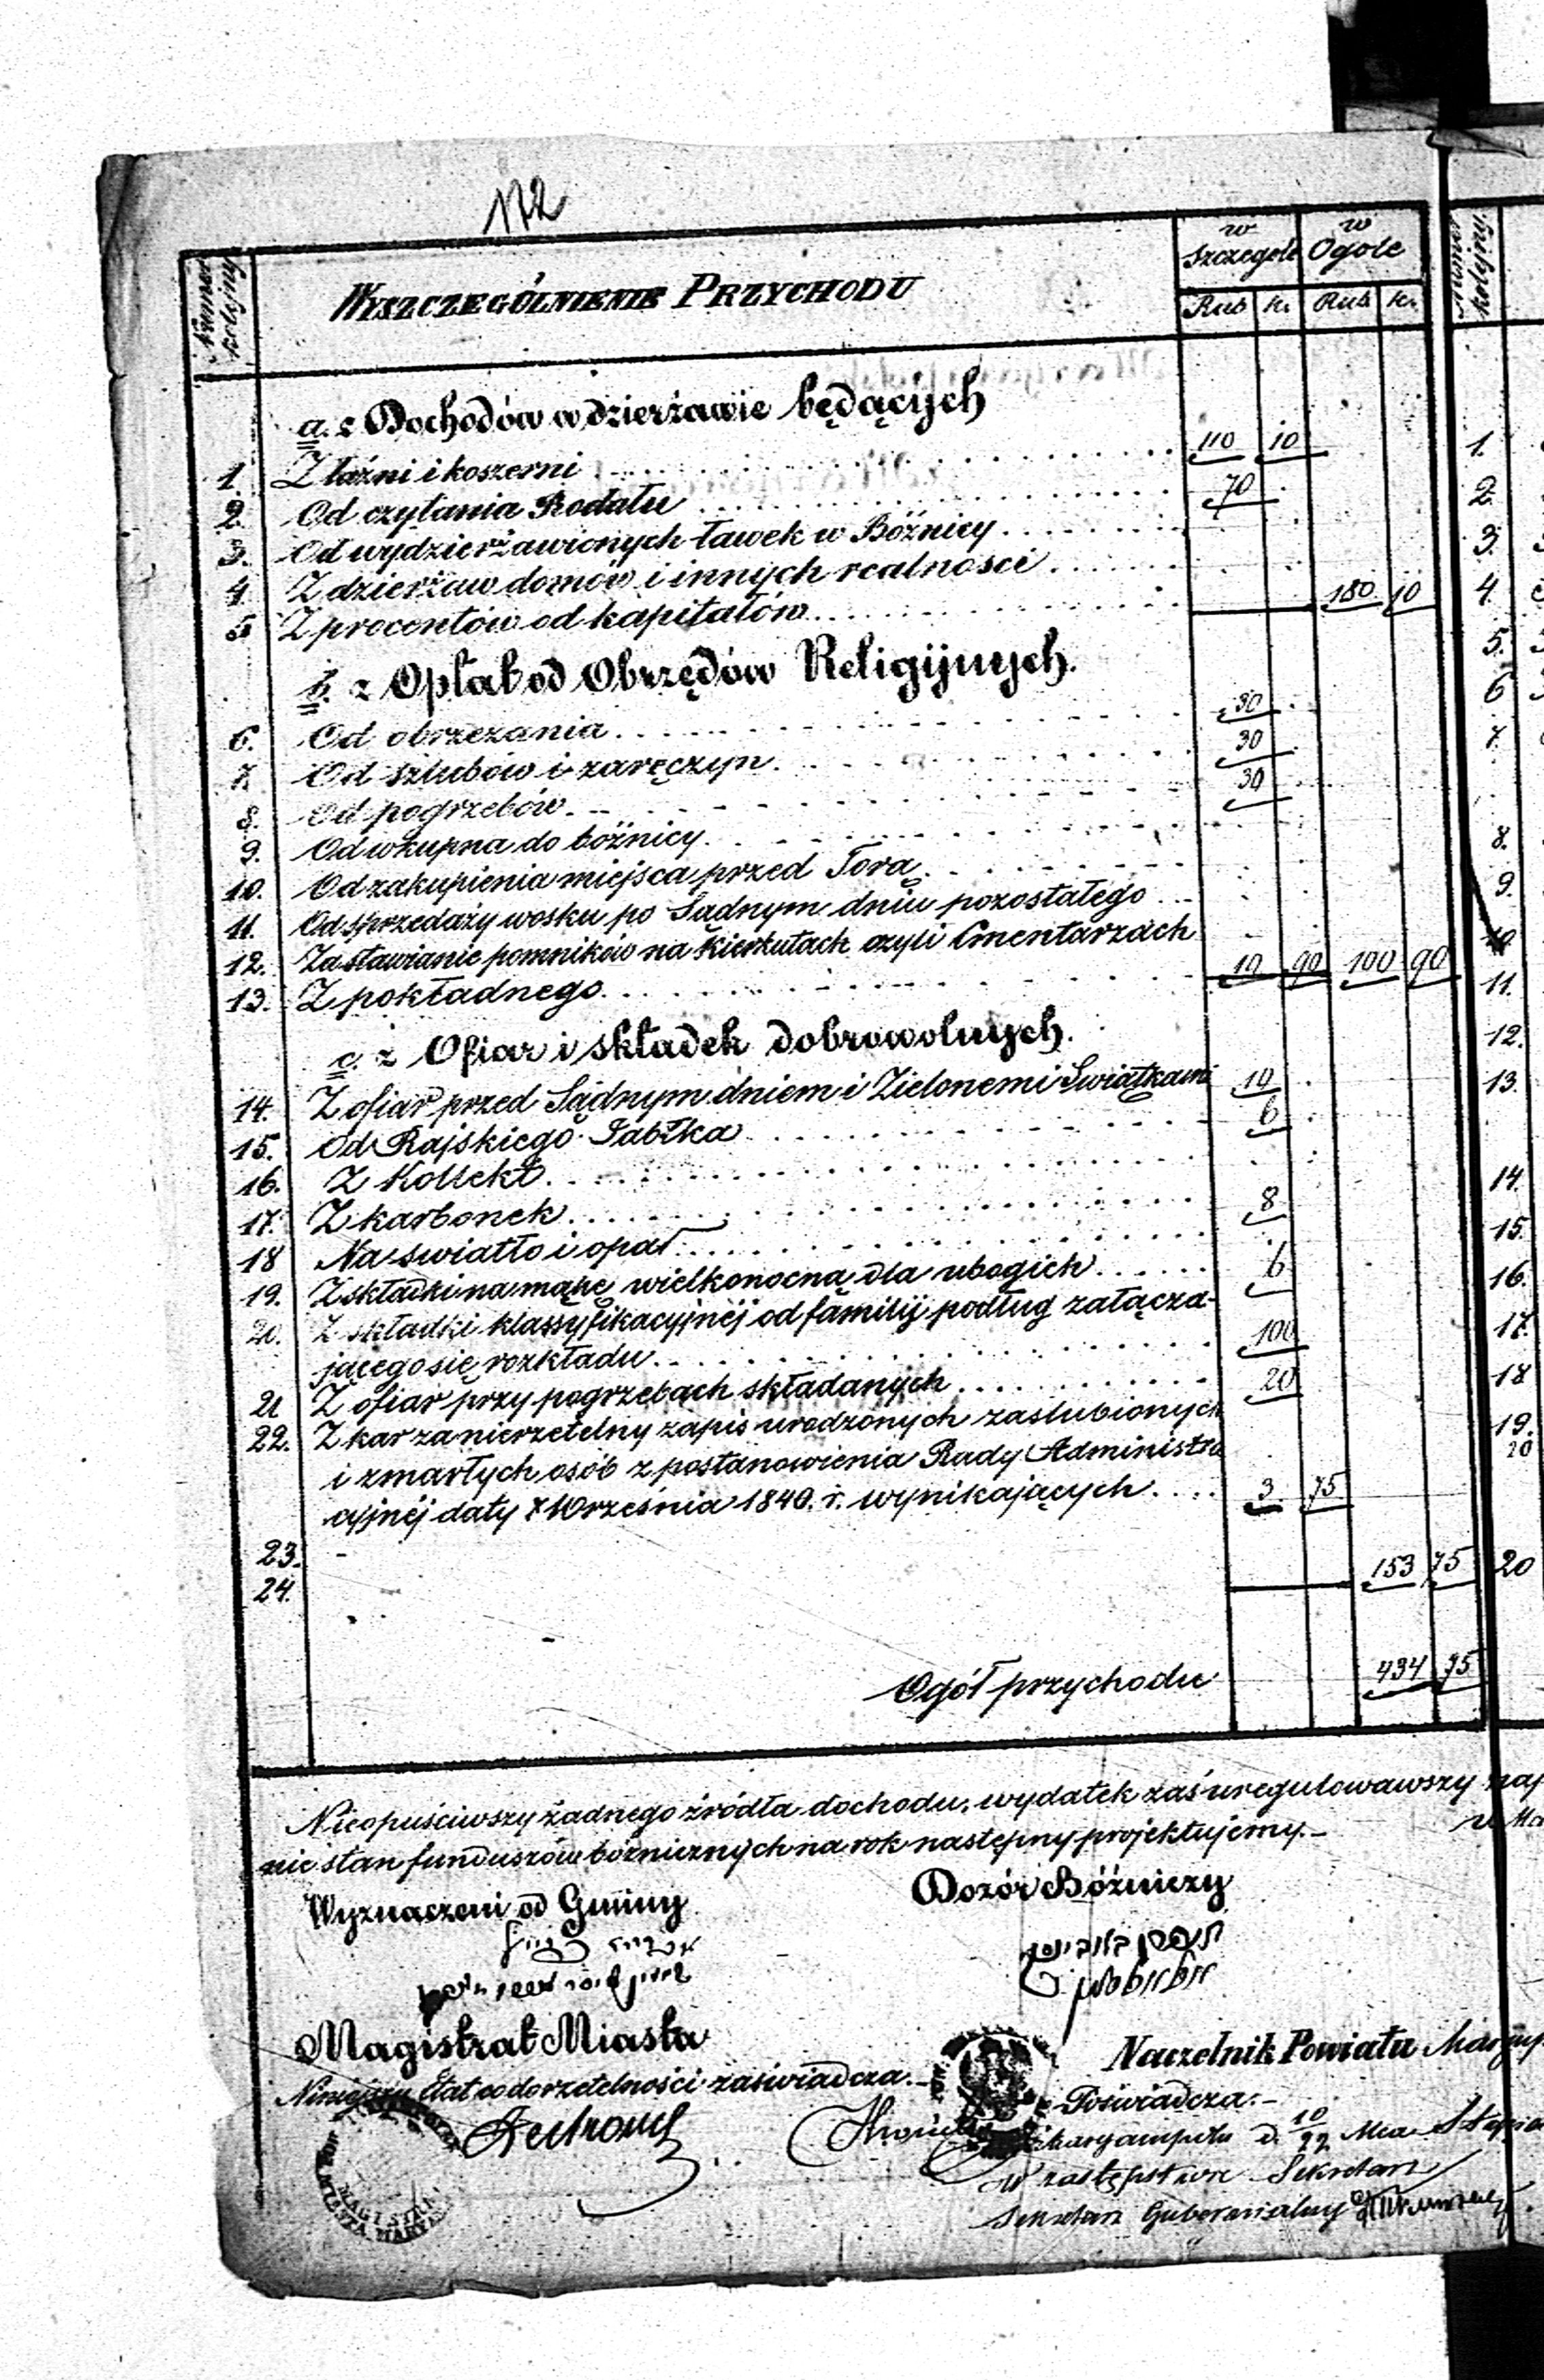 172
Numer kolejny
WYSZCZEGÓLNIENIE PRZYCHODU
w szczegole
w Ogole
Rub k. Rub k.
Numer kolejny
a. z Dochodów w dzierżawie będących
1. Z łaźni i koszerni 110 10
2. Od czytania Rodału 70
3. Od wydzierżawionych ławek w Bóźnicy
4. Z dzierżaw domów i innych realności
5 Z procentów od kapitałów 180 10
b. z Opłat od Obrzędów Religijnych.
6. Od obrzezania 30
7. Od szlubów i zaręczyn 30
8. Od pogrzebów 30
9. Od wkupna do bóźnicy
10. Od zakupienia miejsca przed Torą
11. Od sprzedaży wosku po Sądnym dniu pozostałego
12. Za stawianie pomników na kierkutach czyli Cmentarzach
13. Z pokładnego 10 90 100 90
c. z Ofiar i składek dobrowolnych.
14. Z ofiar przed Sądnym dniem i Zielonemi Swiątkami 10
15. Od Rajskiego Jabłka 6
16. Z Kollekt
17. Z karbonek 8
18 Na swiatło i opał
19. Z składki na mąkę wielkonocną dla ubogich 6
20. Z składki klassyfikacyjnéj od familij podług załącza-
jącego się rozkładu 100
21 Z ofiar przy pogrzebach składanych 20
22. Z kar za nierzetelny zapis urodzonych zaslubionych
i zmarłych osób z postanowienia Rady Administra
cyjnéj daty 7 Września 1840. r. wynikających 3 75
23. -
24. 153 75
Ogół przychodu 434 75
1.
2.
3.
4
5.
6
7.
8.
9.
10
11.
12.
13.
14.
15.
16.
17.
18
19.
20
20
Nieopuściwszy żadnego źródła dochodu, wydatek zaś uregulowawszy naj
nie stan funduszów bóżniczných na rok następny projektujemy.-
Wyznaczeni od Gminy
Dozór Bóźniczy
Magistrat Miasta
Niniejszy Etat co do rzetelności zaświadcza.-
Naczelnik Powiatu Maryamp
Poświadcza.-
Maryampolu d. 10/22 Mca
W zastępstwie Sekretarz
Sekretarz Gubernialny
MAGISTRAT